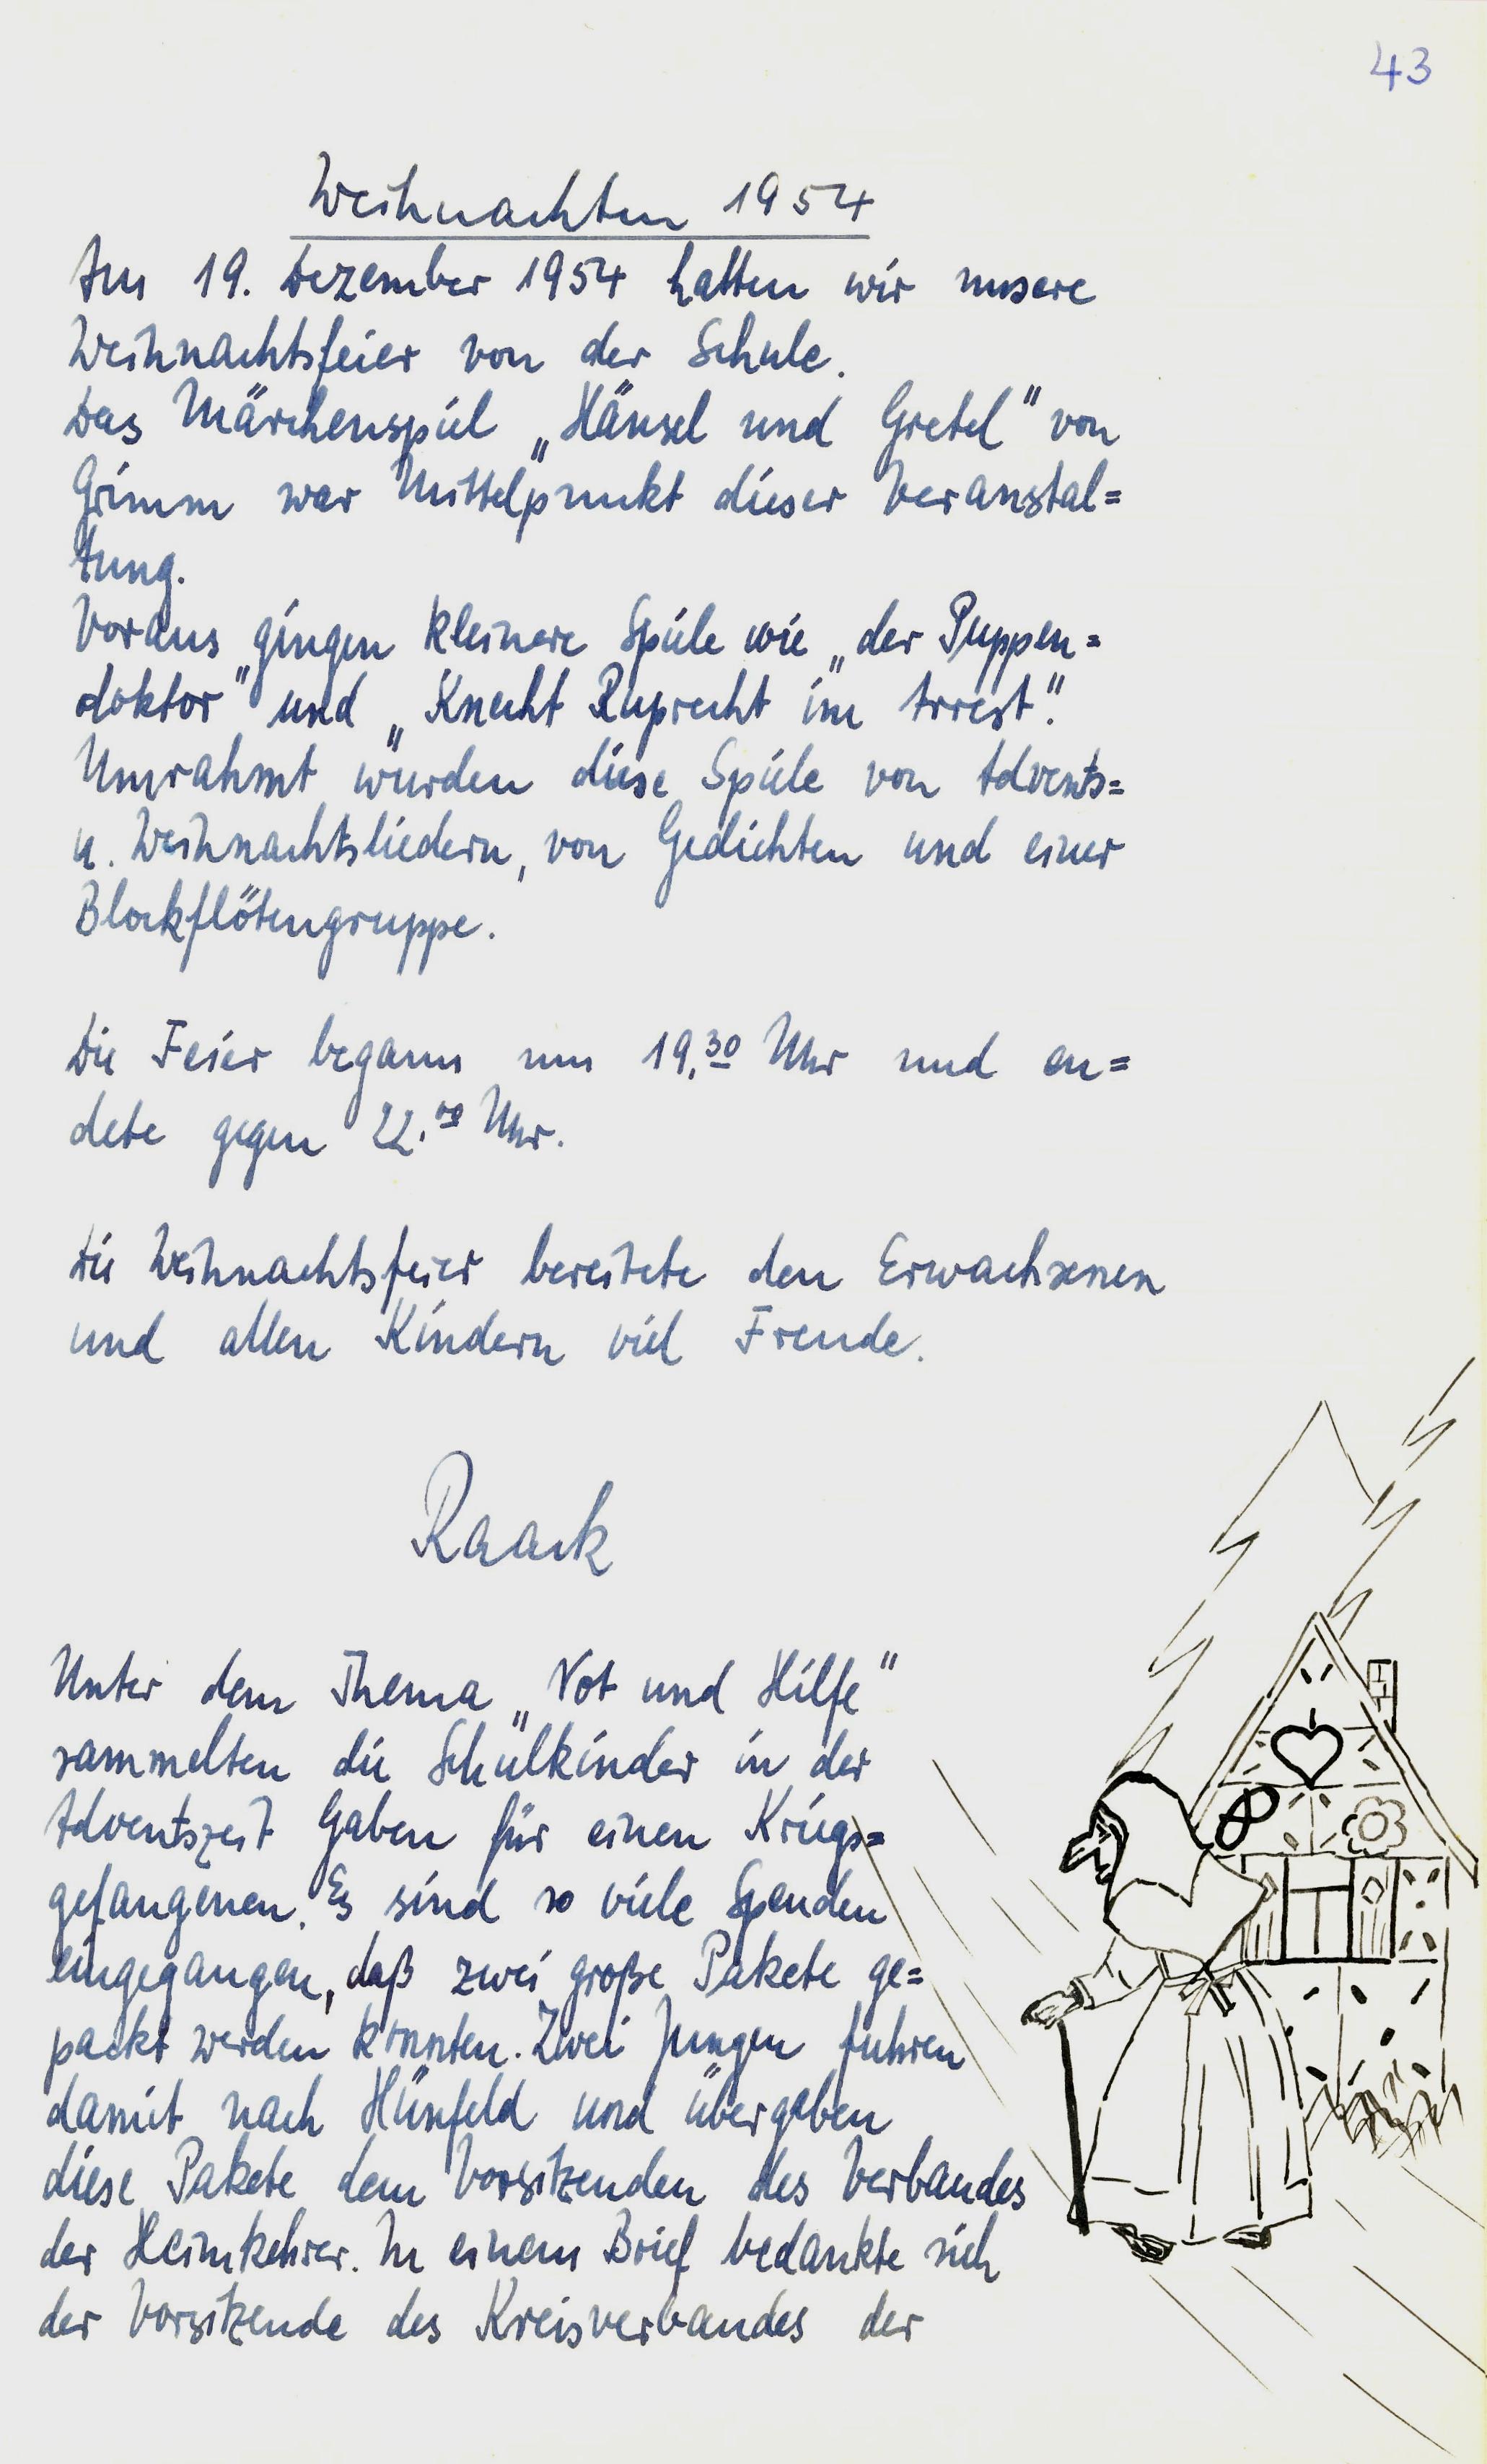 43
Weihnachten 1954
Am 19. Dezember 1954 hatten wir unsere
Weihnachtsfeier von der Schule.
Das Märchenspiel „Hänsel und Gretel" von
Grimm war Mittelpunkt dieser Veranstal=
tung.
Voraus gingen kleinere Spiele wie „der Puppen=
doktor" und „Knecht Ruprecht im Arrest".
Umrahmt wurden diese Spiele von Advents=
u. Weihnachtsliedern, von Gedichten und einer
Blockflötengruppe.
Die Feier begann um 19.30 Uhr und en=
dete gegen 22.00 Uhr.
Die Weihnachtsfeier bereitete den Erwachsenen
und allen Kindern viel Freude.
Raack
Unter dem Thema „Not und Hilfe"
sammelten die Schulkinder in der
Adventszeit Gaben für einen Kriegs=
gefangenen. Es sind so viele Spenden
eingegangen, daß zwei große Pakete ge=
packt werden konnten. Zwei Jungen fuhren
damit nach Hünfeld und übergaben
diese Pakete dem Vorsitzenden des Verbandes
der Heimkehrer. In einem Brief bedankte sich
der Vorsitzende des Kreisverbandes der